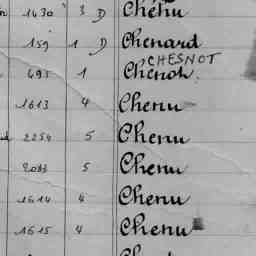 1430 3 D Chenu
159 1 D Chenard
CHESNOT
495 1 Chenot
1613 4 Chenu
2254 5 Chenu
2033 5 Chenu
1614 4 Chenu
1615 4 Chenu